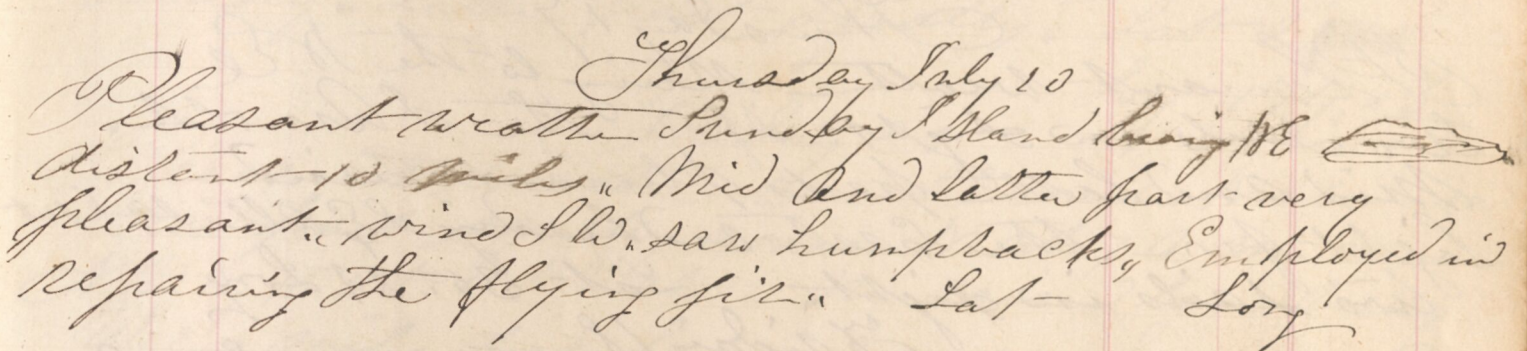 Thursday July 10
Pleasant weather Sunday Island being NE
distant 10 miles„ Mid and latter part very
pleasant„ wind SW„ saw humpbacks„ Employed in
repairing the flying jib„ Lat Long